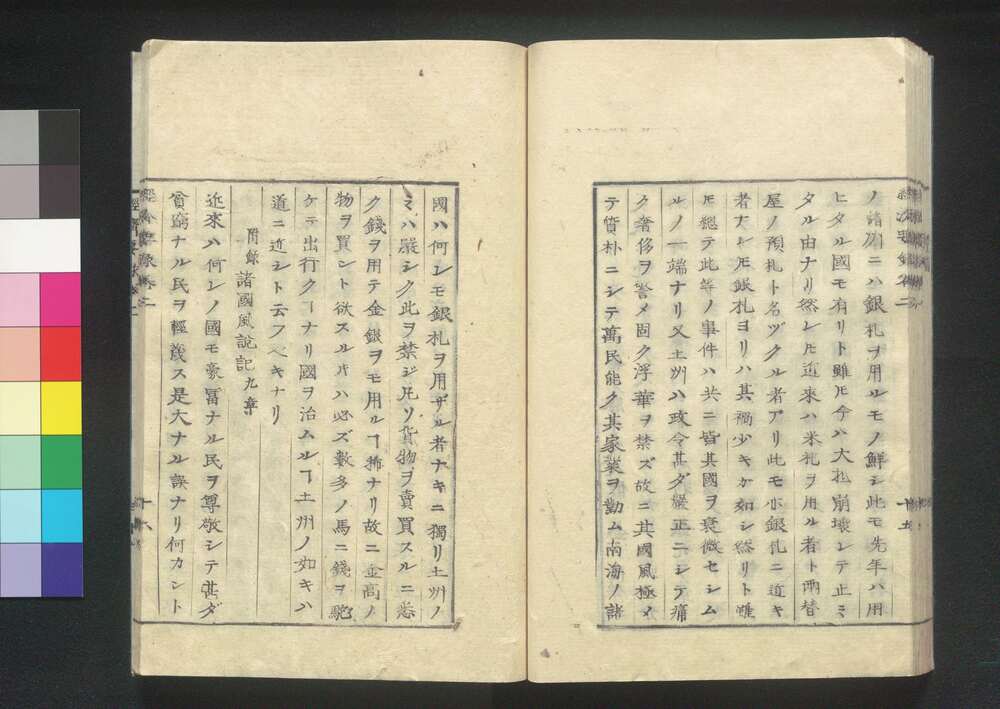 ノ諸州ニハ銀札ヲ用ルモノ鮮シ此モ先年ハ用
ヒタル國モ有リト雖𪜈今ハ大扺崩壊シテ止ミ
タル由ナリ然レ𪜈近來ハ米札ヲ用ル者ト兩替
屋ノ預札ト名ヅクル者アリ此モ亦銀札ニ近キ
者ナレ𪜈銀札ヨリハ其禍少キカ如シ然リト雖
𪜈總テ此等ノ事件ハ共ニ皆其國ヲ衰微セシム
ルノ一端ナリ又土州ハ政令甚ダ嚴正ニシテ痛
ク奢侈ヲ警メ固ク浮華ヲ禁ズ故ニ其國風極メ
テ質朴ニシテ萬民能ク其家業ヲ勤ム南海ノ諸
國ハ何レモ銀札ヲ用ザル者ナキニ獨リ土州ノ
ミハ嚴シク此ヲ禁ジ凡ソ貨物ヲ賣買スルニ悉
ク錢ヲ用テ金銀ヲモ用ルヿ稀ナリ故ニ金高ノ
物ヲ買ント欲スル𪜈ハ必ズ數多ノ馬ニ錢ヲ駝
ケテ出行クヿナリ國ヲ治ムルヿ土州ノ如キハ
道ニ近シト云フベキナリ
附録 諸國風說記 九章
近來ハ何レノ國モ豪冨ナル民ヲ尊敬シテ甚ダ
貧窮ナル民ヲ輕蔑ス是大ナル誤ナリ何カント